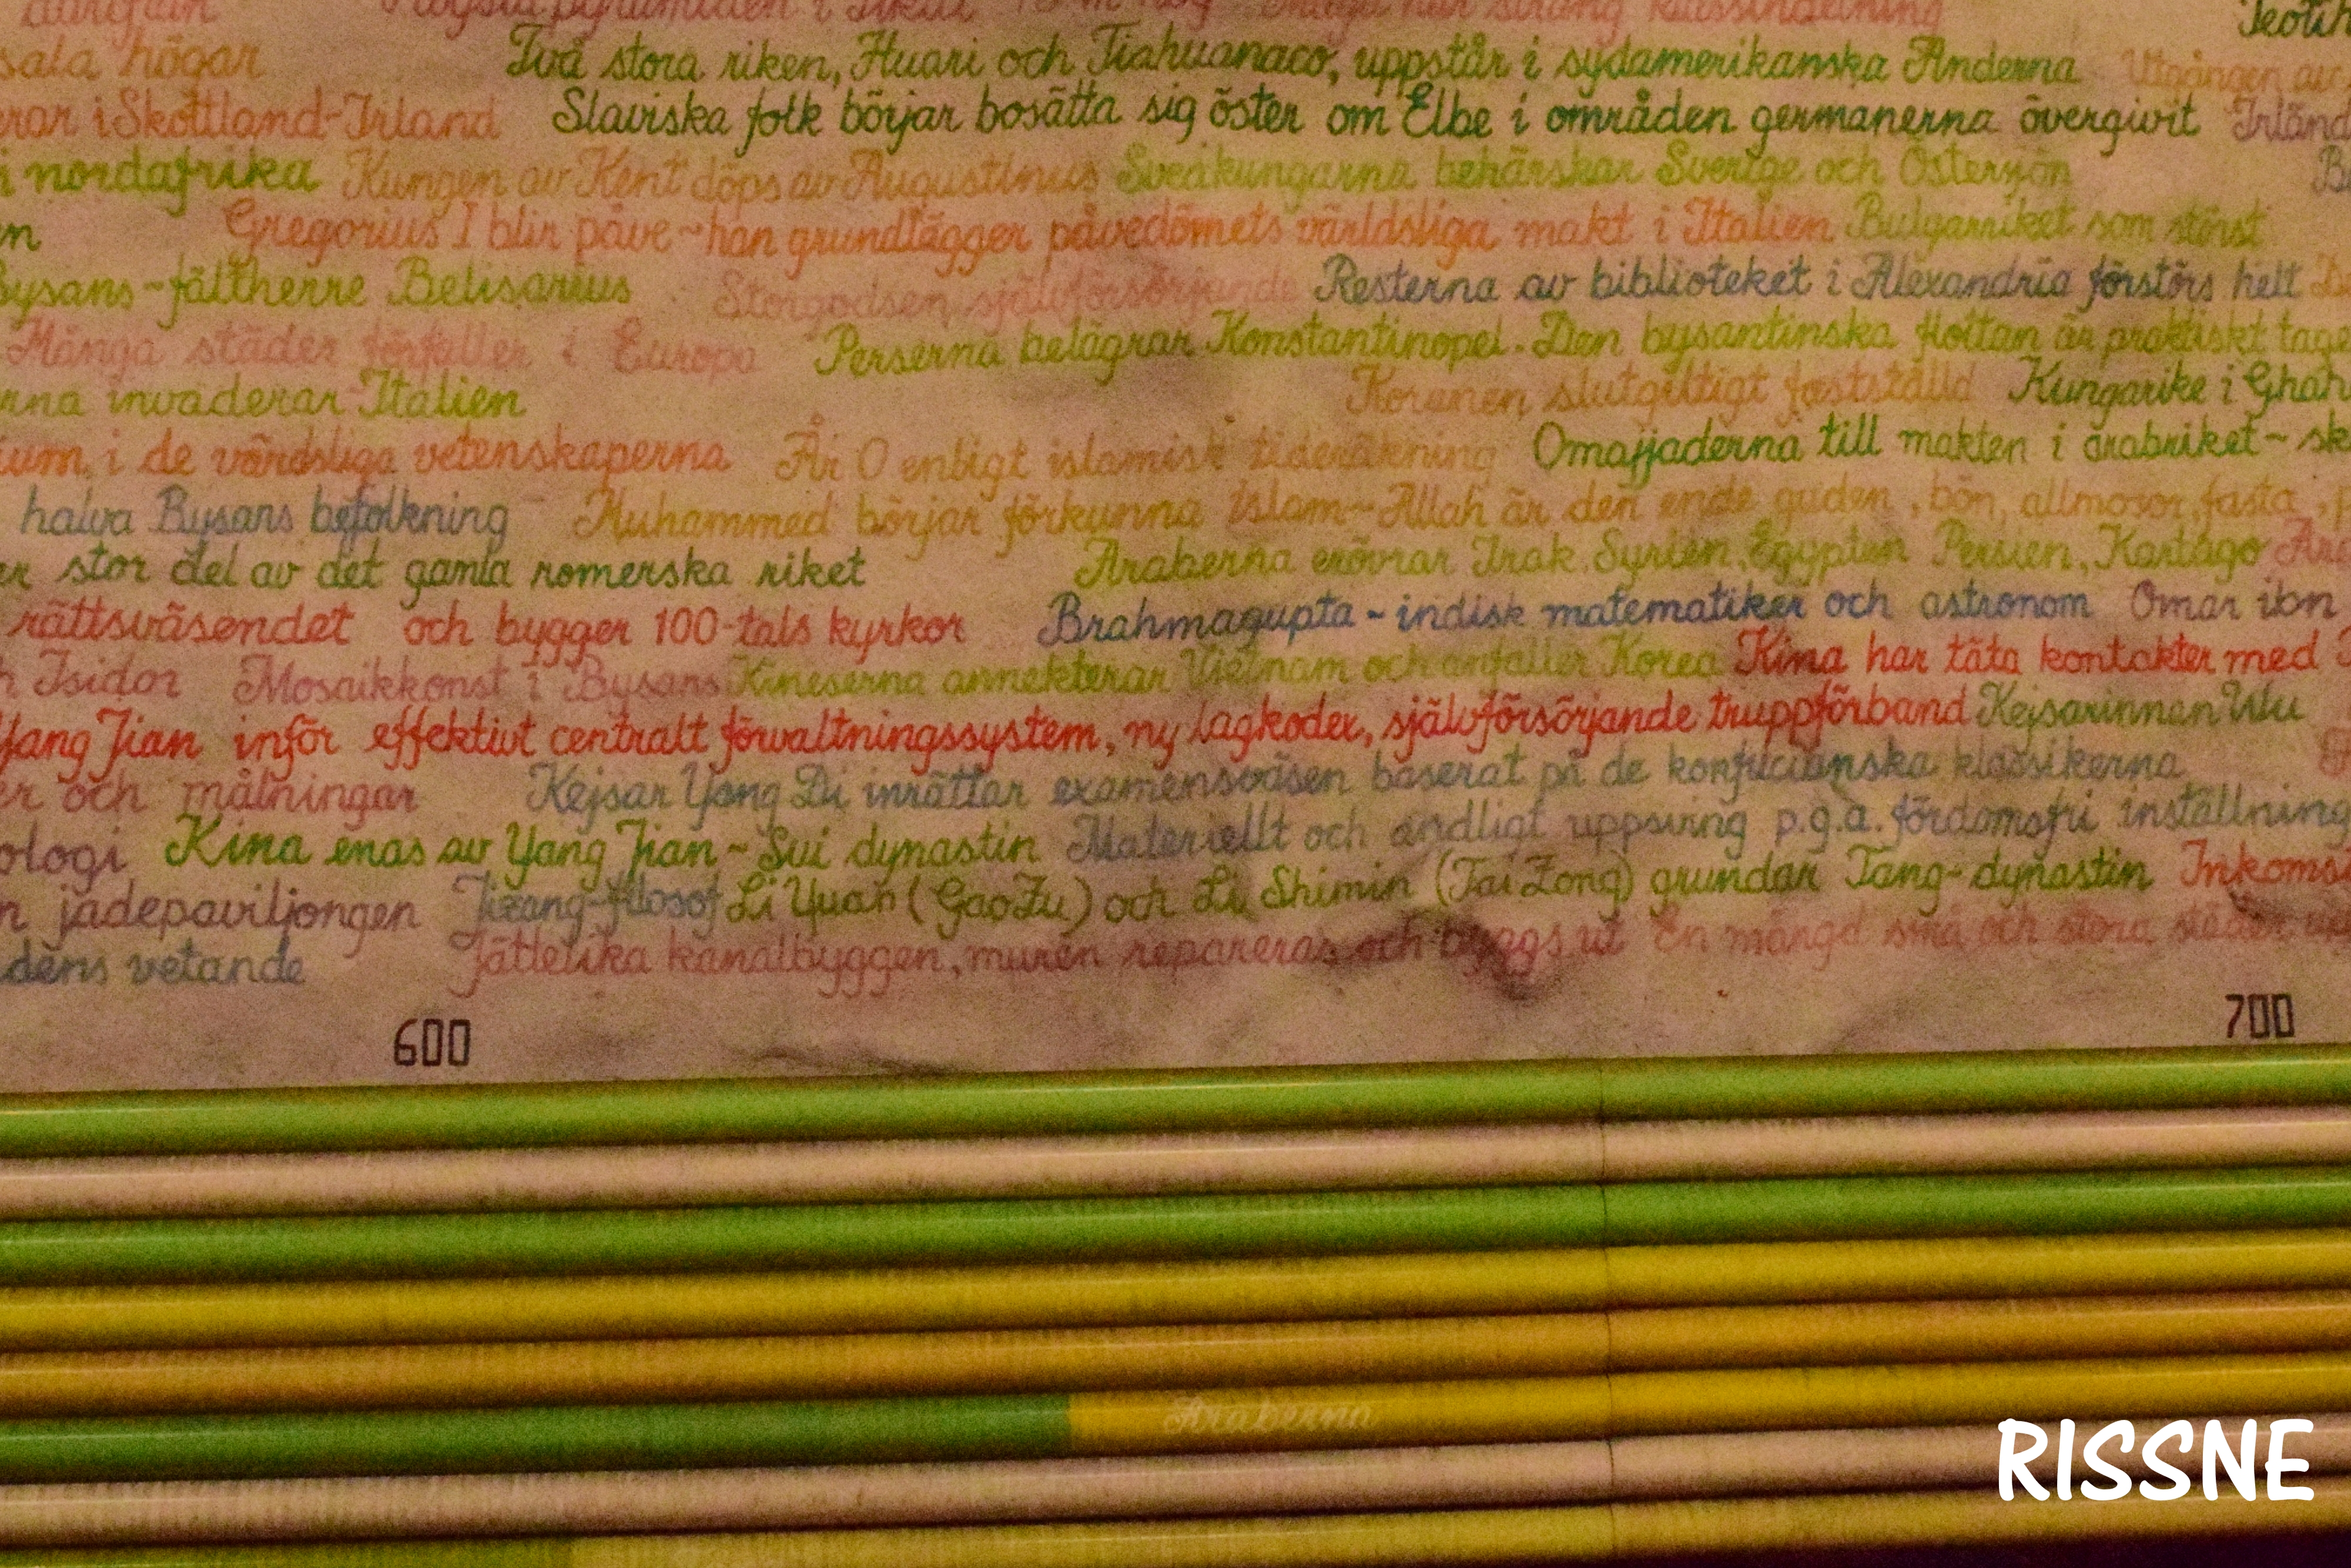 i Tikal
Två stora riken, Huari och Tiahuanaco, uppstår i sydamerikanska Anderna Utgången av
sala högar
i Skottland-Irland Slaviska folk börjar bosätta sig öster om Elbe i områden germanerna övergivit
i nordafrika Kungen av Kent döps av Augustinus Sveakungarna behärskar Sverige och Östersjön
Gregorius I blir påve ~ han grundlägger påvedömets världsliga makt i Italien Bulgarriket som störst
Bysans-fältherre Belisarius Storgodsen självförsörjande Resterna av biblioteket i Alexandria förstörs helt
Många städer förfaller i Europa Perserna belägrar Konstantinopel. Den bysantinska flottan är praktiskt
rna invaderar Italien Koranen slutgiltigt fastställd Kungarike i
ium, i de värdsliga vetenskaperna År 0 enligt islamisk tideräkning Omajjaderna till makten i arabriket ~
halva Bysans befolkning Muhammed börjar förkunna Islam ~ Allah är den ende guden, bön, allmosor, fasta,
er stor del av det gamla romerska riket Araberna erövrar Irak, Syrien, Egypten, Persien, Kartago
rättsväsendet och bygger 100-tals kyrkor Brahmagupta - indisk matematiker och astronom Omar ibn
Isidor Mosaikkonst i Bysans Kineserna annekterar Vietnam och anfaller Korea Kina har täta kontakter med
Yang Jian inför effektivt centralt förvaltningssystem, ny lagkoder, självförsörjande truppförband Kejsarinnan Wu
er och målningar Kejsar Yang Di inrättar examensväsen baserat på de konfucianska klassikerna
ologi Kina enas av Yang Jian ~ Sui dynastin Materiellt och andligt uppsving p.g.a. fördomsfri inställning
n jadepaviljongen Jizang-filosof Li Yuan (Gao Zu) och Li Shimin (Tai Zong) grundar Tang-dynastin
dens vetande Jättelika kanalbyggen, muren repareras och byggs ut En mängd små och stora städer
600 700
Araberna
RISSNE